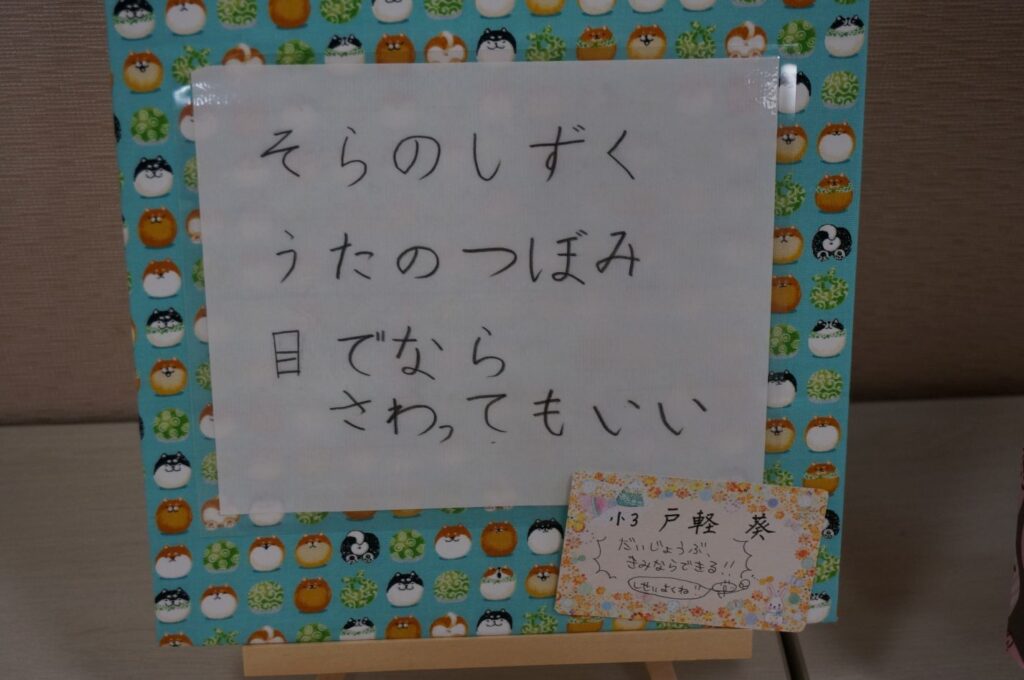 そらのしずく
うたのつぼみ
目でなら
さわってもいい
小3 戸軽 葵
だいじょうぶ、
きみならできる!!
しせいよくね